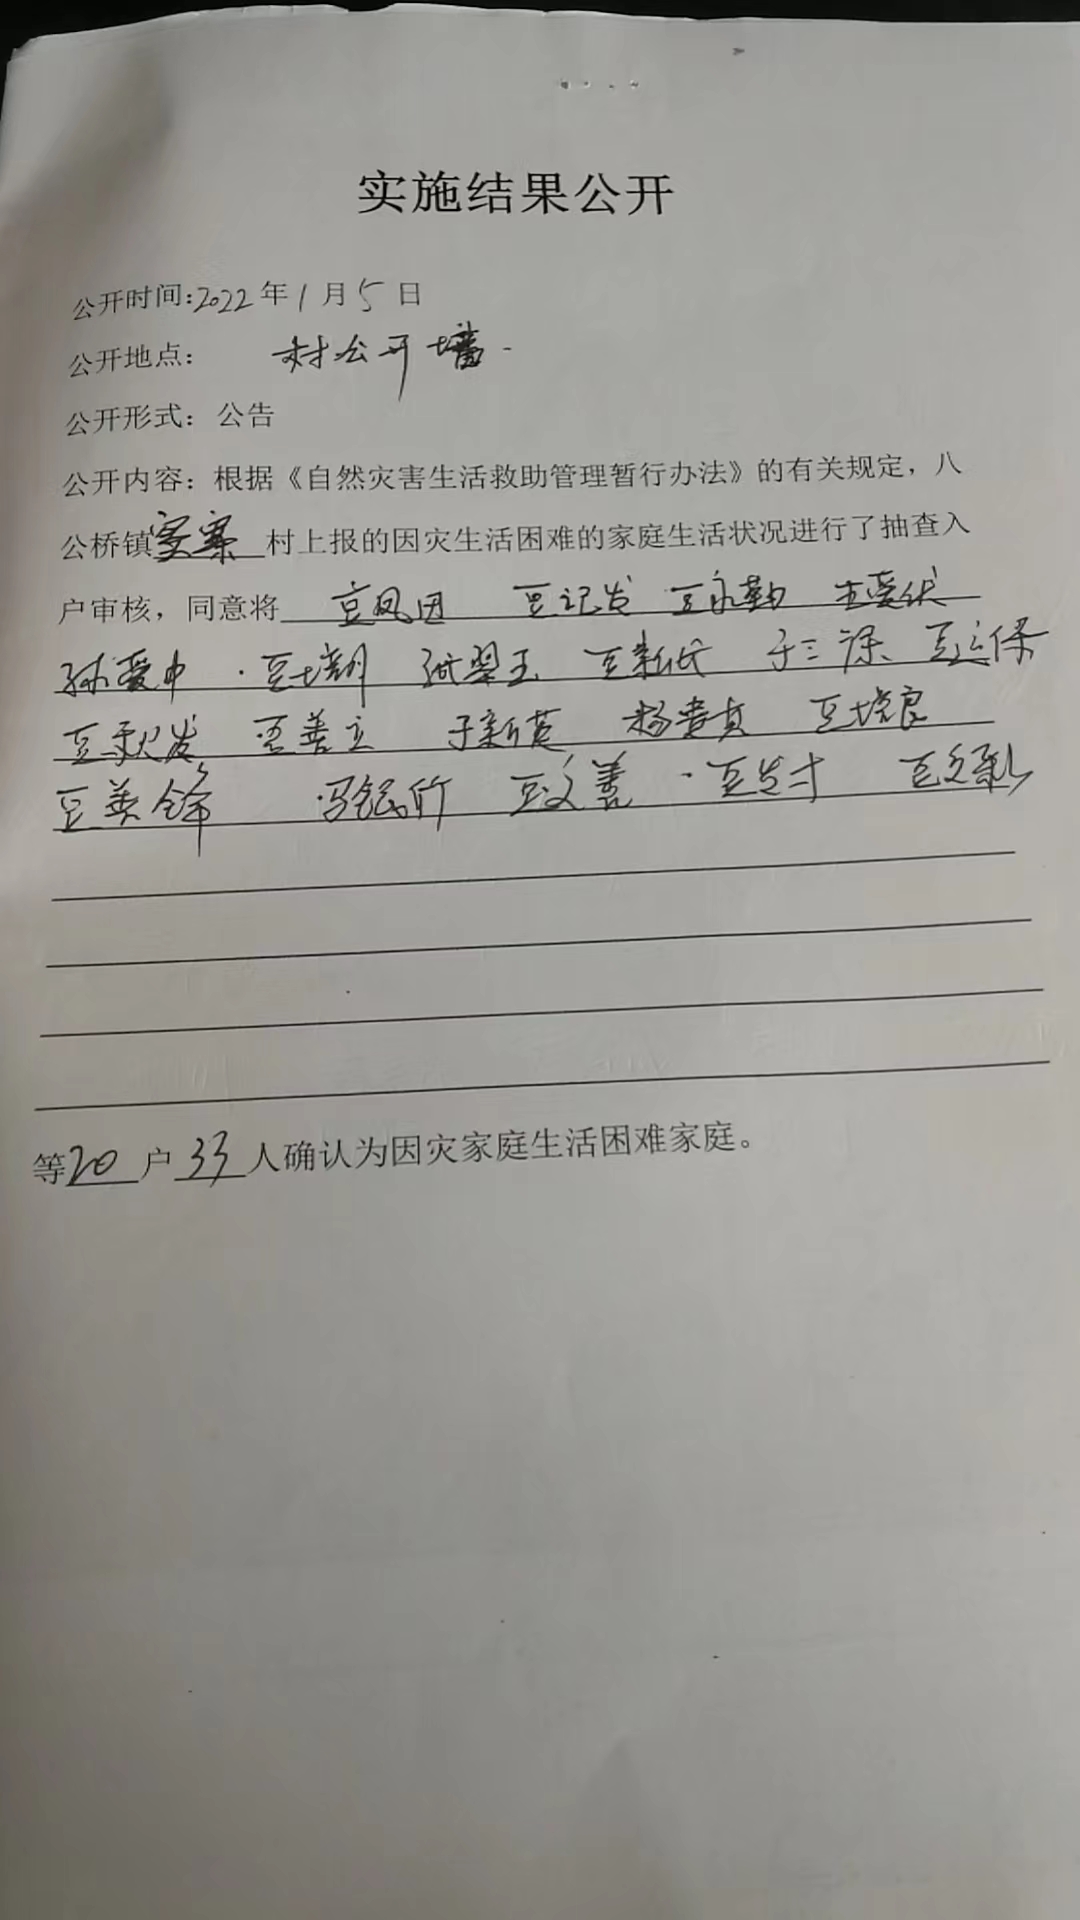 实施结果公开
公开时间:2022年1月5日
公开地点: 村公开墙
公开形式:公告
公开内容:根据《自然灾害生活救助管理暂行办法》的有关规定,八
公桥镇 村上报的因灾生活困难的家庭生活状况进行了抽查入
户审核,同意将 豆凤因 豆记发 豆永勤
孙爱中 豆新氏 豆运保
豆秋发 豆善立 于新英 杨贵贞
豆英锋 豆文善 豆发才
等20户33人确认为因灾家庭生活困难家庭。